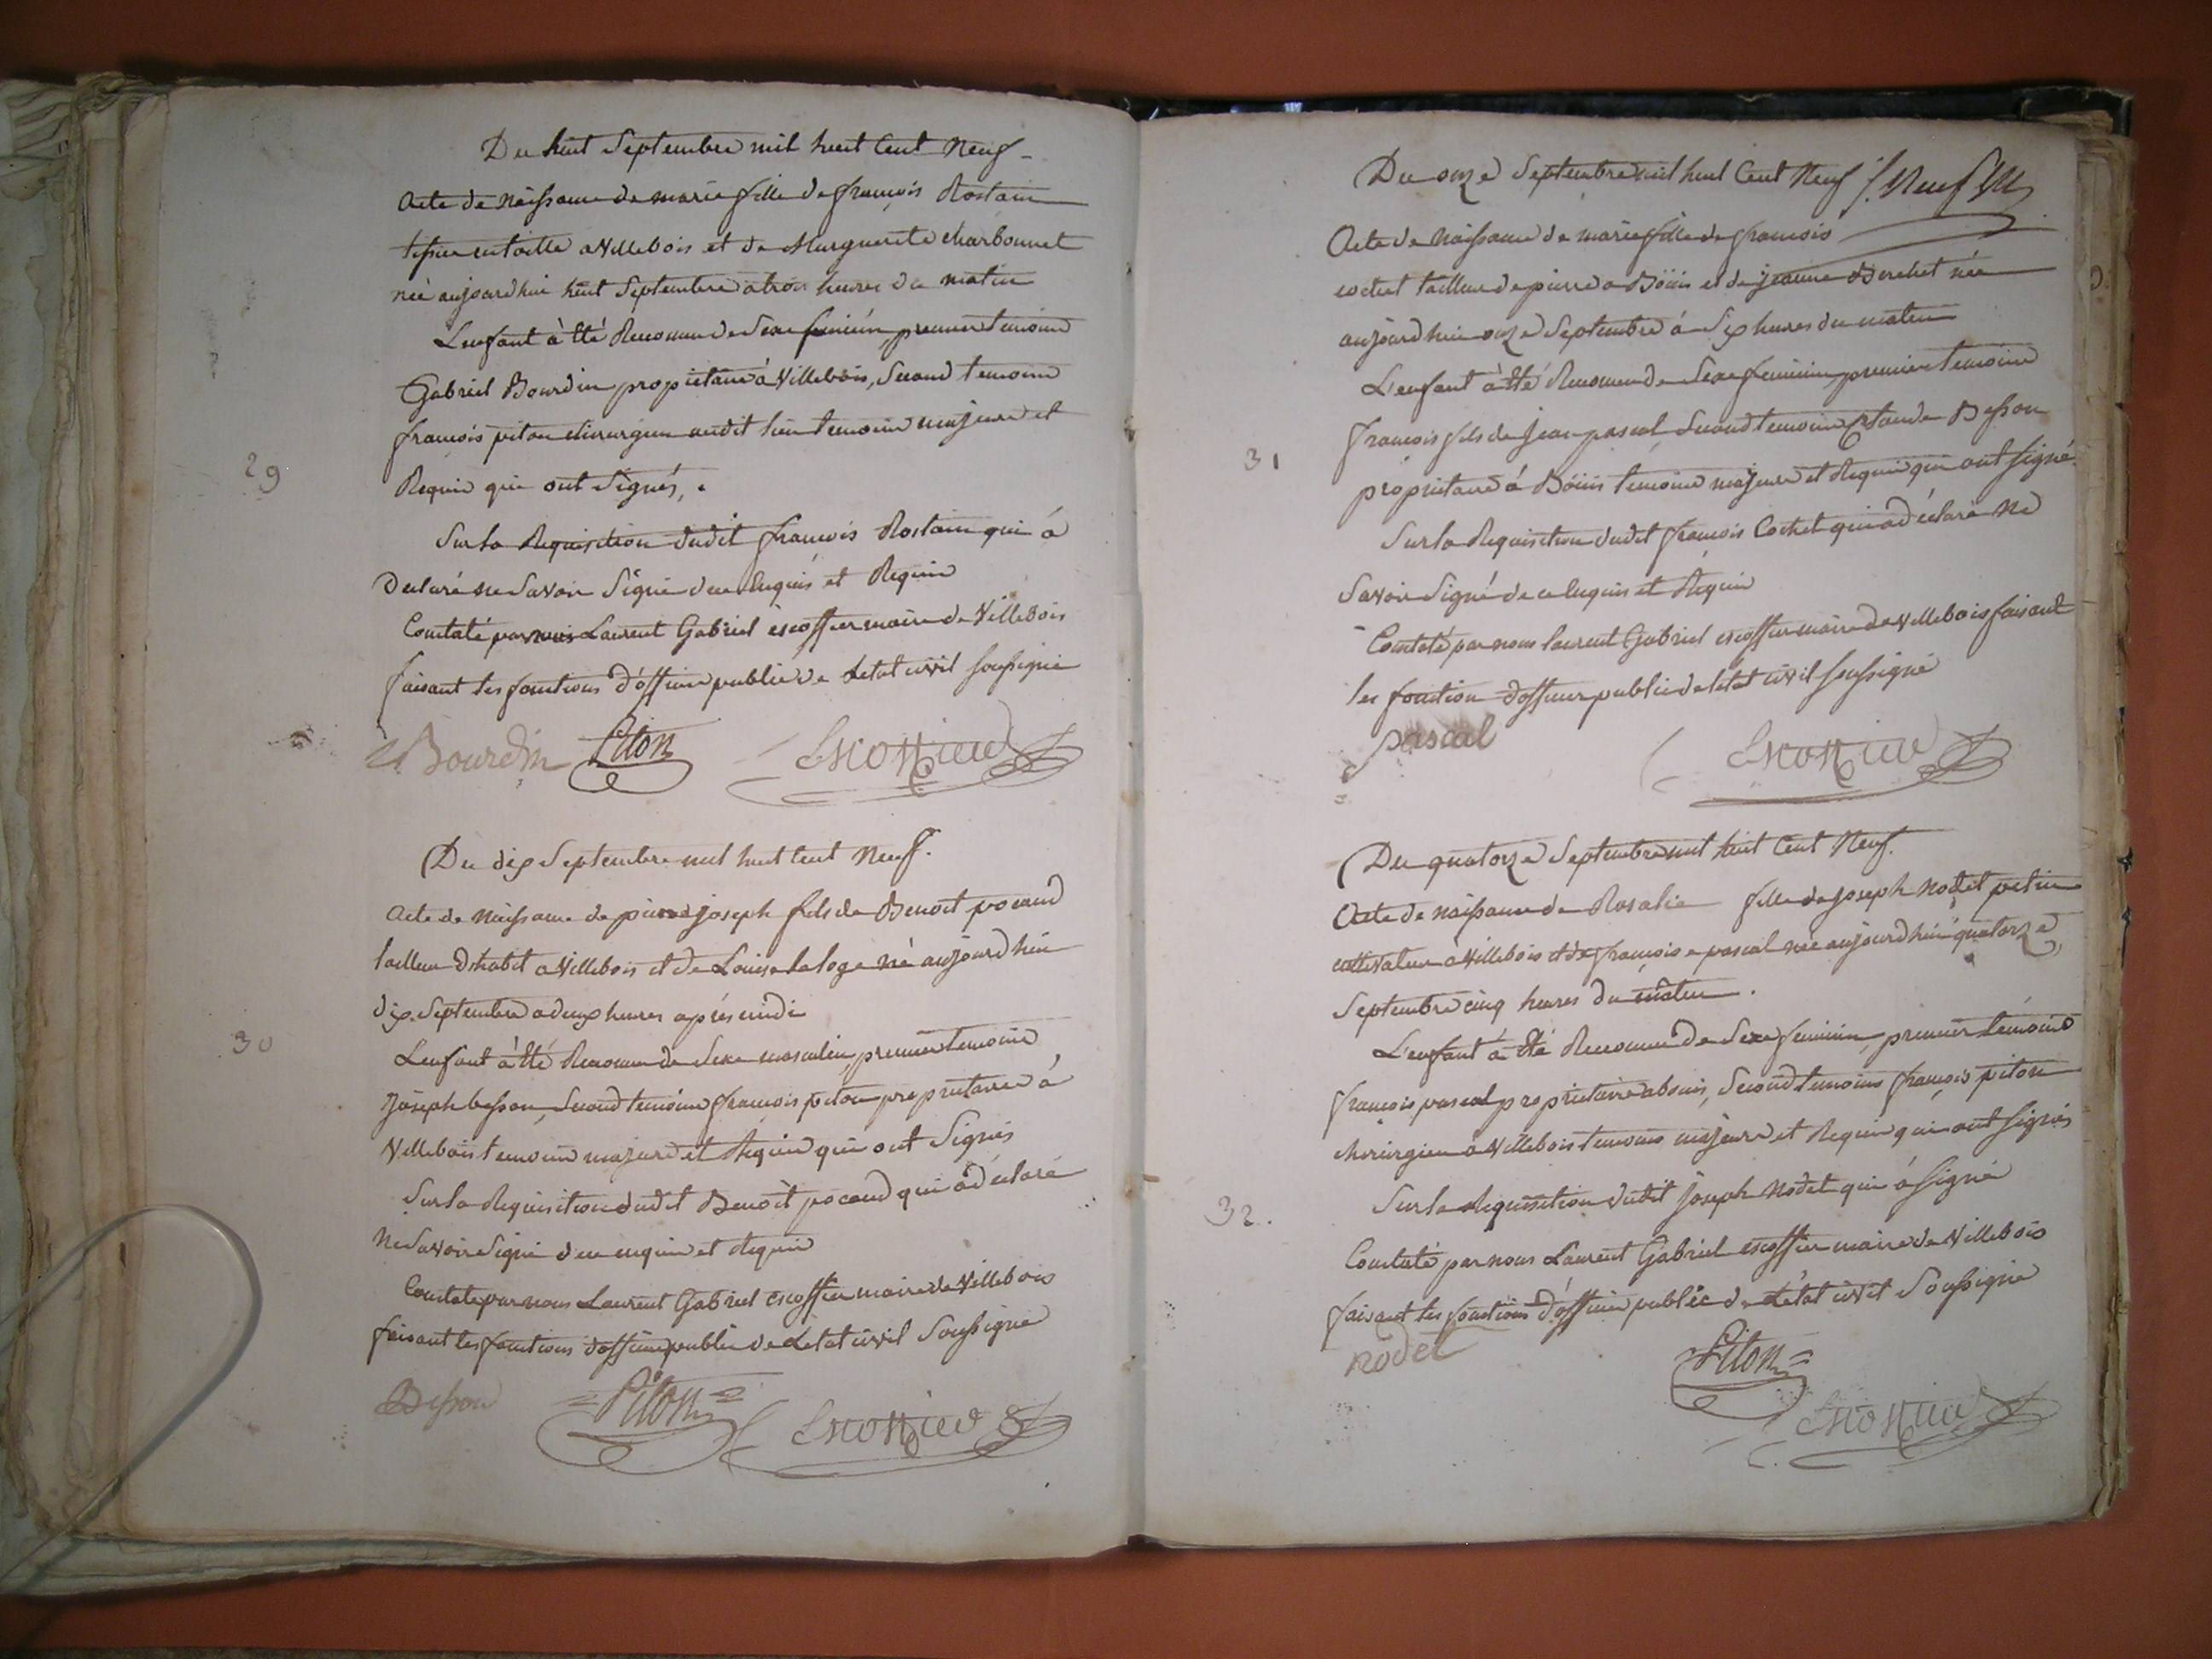 Du huit Septembre mil huit Cent Neuf
Acte de Naissance de marie fille de françois Rostain
tissier en toille a Villebois et de Marguerite charbonnet
née aujourdhui huit Septembre a trois heures du matin
L'enfant à été Reconnu de Sexe feminin, premier temoins
Gabriel Bourdin propriétaire à Villebois, Second temoins
françois piton chirurgien audit lieu temoins majeurs et
29
Requis qui ont Signés,
Sur la Requisition dudit françois Rostain qui á
Declaré ne Savoir Signé de ce enquis et Requis
Constaté par nous Laurent Gabriel escoffier maire de Villebois
faisant les fonctions d'officier public de Letat civil soussigné
Bourdin Piton Escoffier
Du dix Septembre mil huit Cent Neuf.
Acte de Naissance de pierre joseph fils de Benoit pocaud
tailleur d'habit a Villebois et de Louise Laloge né aujourdhui
dix Septembre a deux heures aprés midi
30
L'enfant à été Reconnu de Sexe masculin, premier temoins
Joseph besson, Second temoins françois piton propriétaire à
Villebois temoins majeurs et Requis qui ont Signés
Sur la Requisition dudit Benoit pocaud qui à déclaré
Ne Savoir Signé de ce enquis et Requis
Constaté par nous Laurent Gabriel escoffier maire de Villebois
faisant les fonctions d'officier public de Letat civil Soussigné
Besson Piton Escoffier
Du onze Septembre mil huit Cent Neuf
Acte de Naissance de marie fille de françois
cochet tailleur de pierre a Böuis et de jeanne Berchet née
aujourdhui onze Septembre á Six heures du matin
L'enfant à été Reconnu de Sexe feminin, premier temoins
31
françois fils de Jean pascal Second temoins Claude Besson
propriétaire á Böuis temoins majeurs et Requis qui ont signé.
Sur la Requisition dudit françois Cochet qui a déclaré Ne
Savoir Signé de ce enquis et Requis
Constaté par nous laurent Gabriel escoffier maire de Villebois faisant
les fonction d'officier public de letat civil soussigné
pascal Escoffier
Du quatorze Septembre mil huit Cent Neuf.
Acte de naissance de Rosalie fille de joseph Nodet
cultivateur à Villebois et de françoise pascal née aujourdhui quatorze
Septembre cinq heures du matin.
L'enfant à été Reconnu de Sexe feminin, premier temoins
françois pascal propriétaire a bouis, Second temoins françois piton
chirurgien a Villebois temoins majeurs et Requis qui ont signés
32.
Sur la Requisition dudit joseph Nodet qui á signé
Constaté par nous Laurent Gabriel escoffier maire de Villebois
faisant les fonctions d'officier public de Létat civil Soussigné
nodet
Piton
Escoffier